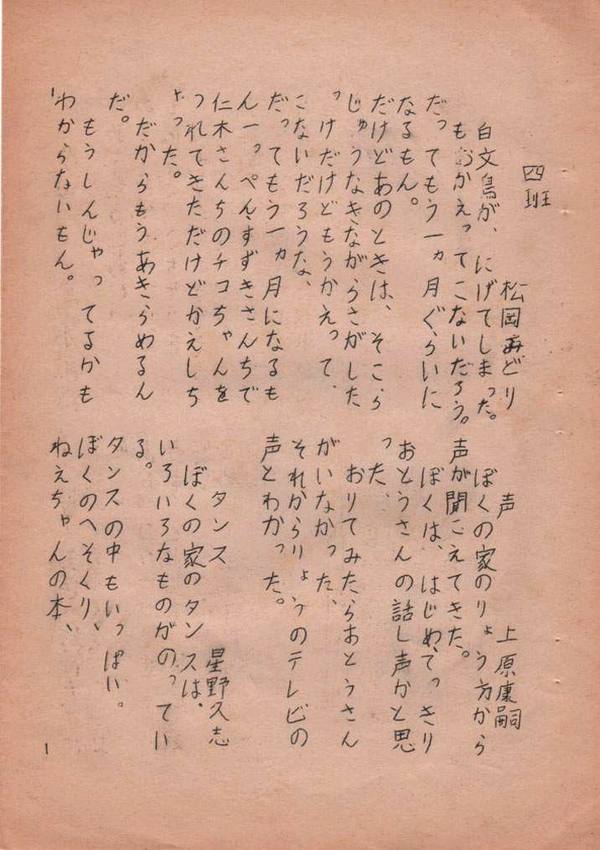 四班
松岡みどり
白文鳥が、にげてしまった。
もおかえってこないだろう。
だってもう一ヵ月ぐらいに
なるもん。
だけどあのときは、そこら
じゅうなきながらさがした
っけだけどもうかえって、
こないだろうな、
だってもう一ヵ月になるも
ん一っぺんすずきさんちで
仁木さんちのチコちゃんを
つれてきただけどかえしち
ゃった。
だからもうあきらめるん
だ。
もうしんじゃってるかも
わからないもん。
声
上原康嗣
ぼくの家のりょう方から
声が聞こえてきた。
ぼくは、はじめ、てっきり
おとうさんの話し声かと思
った、
おりてみたらおとうさん
がいなかった、
それからりょうのテレビの
声とわかった。
タンス
星野久志
ぼくの家のタンスは、
いろいろなものがのってい
る。
タンスの中もいっぱい。
ぼくのへそくり、
ねえちゃんの本、
1